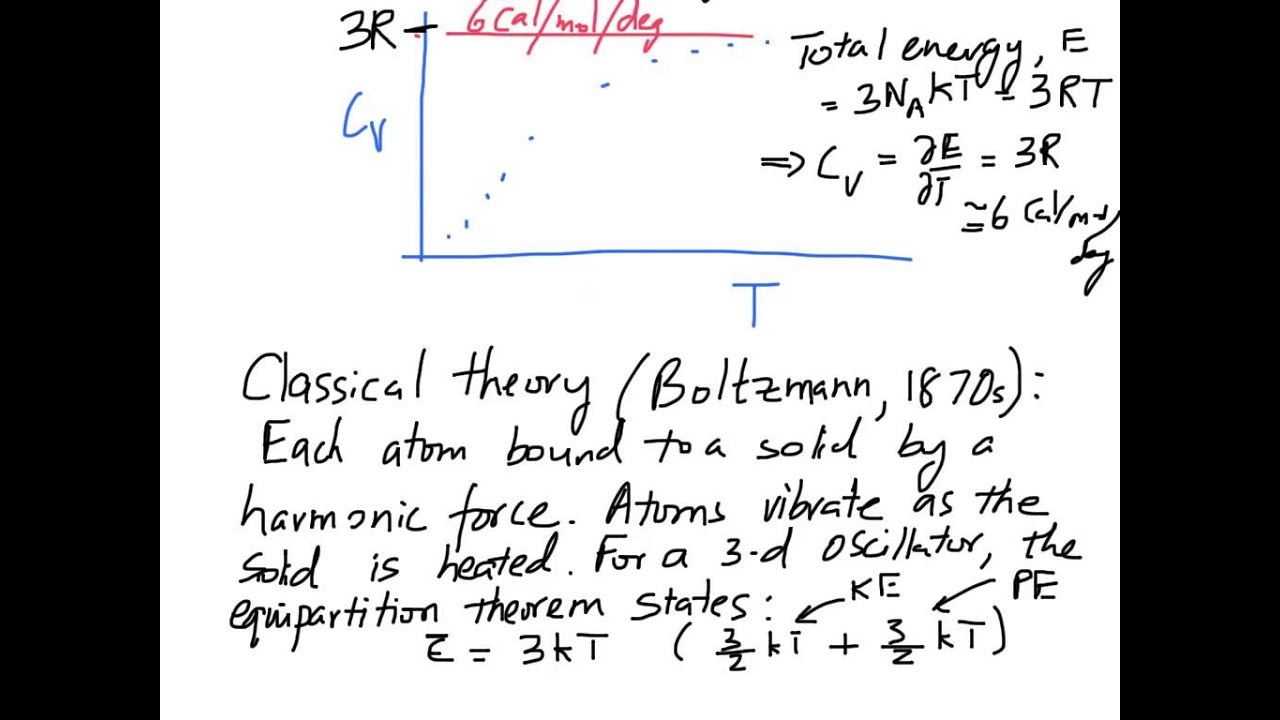 3R
6 Cal/mol/deg
Cv
T
Total energy, E
= 3NAkT = 3RT
⇒ Cv = ∂E/∂T = 3R
≅ 6 Cal/mol/
deg
Classical theory (Boltzmann, 1870s):
Each atom bound to a solid by a
harmonic force. Atoms vibrate as the
solid is heated. For a 3-d oscillator, the
equipartition theorem states:
KE
PE
ε = 3kT (3/2 kT + 3/2 kT)